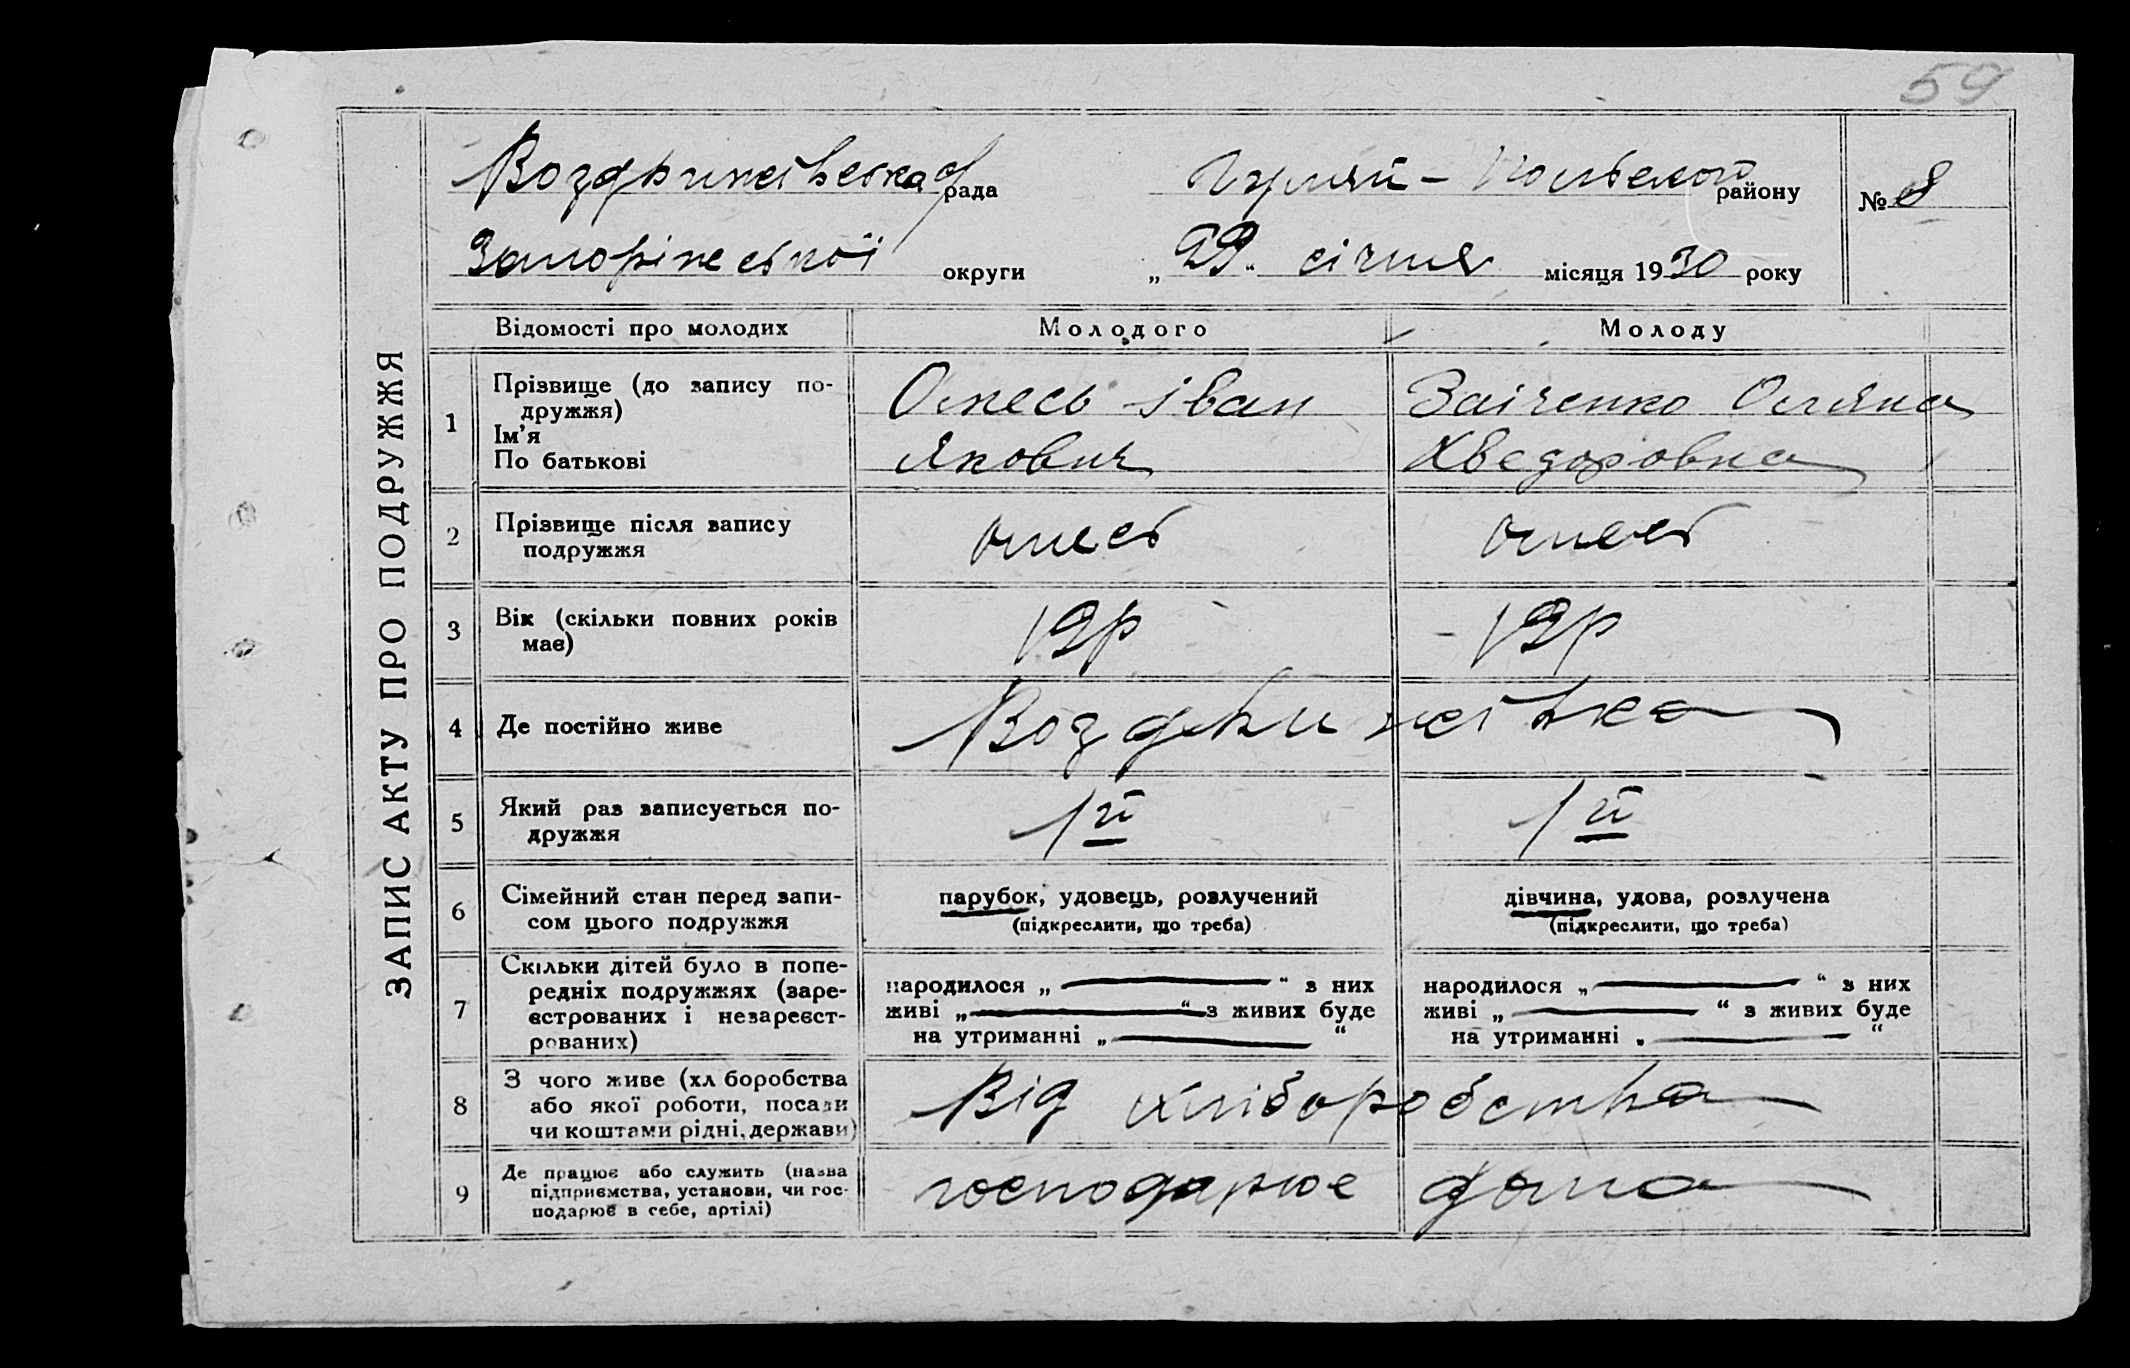 59
Воздвижівська рада Гуляй-Польского району № 8
Запоріжської округи „29“ січня місяця 1930 року
ЗАПИС АКТУ ПРО ПОДРУЖЖЯ
Відомості про молодих Молодого Молоду
1 Прізвище (до запису по-
дружжя)
Ім’я
По батькові
Олесь Іван
Якович
Заіченко Оляна
Хведоровна
2 Прізвище після запису
подружжя
Олесь Олесь
3 Вік (скільки повних років
має)
19р 19р
4 Де постійно живе Воздвижівка
5 Який раз записується по-
дружжя
1й 1й
6 Сімейний стан перед запи-
сом цього подружжя
парубок, удовець, розлучений
(підкреслити, що треба)
дівчина, удова, розлучена
(підкреслити, що треба)
7 Скільки дітей було в попе-
редніх подружжях (заре-
єстрованих і незареєст-
рованих)
народилося „ — “ з них
живі „ — “ з живих буде
на утриманні „ — “
народилося „ — “ з них
живі „ — “ з живих буде
на утриманні „ — “
8 З чого живе (хл боробства
або якої роботи, посади
чи коштами рідні, держави)
Від хліборобства
9 Де працює або служить (назва
підприємства, установи, чи гос-
подарює в себе, артілі)
господарює дома